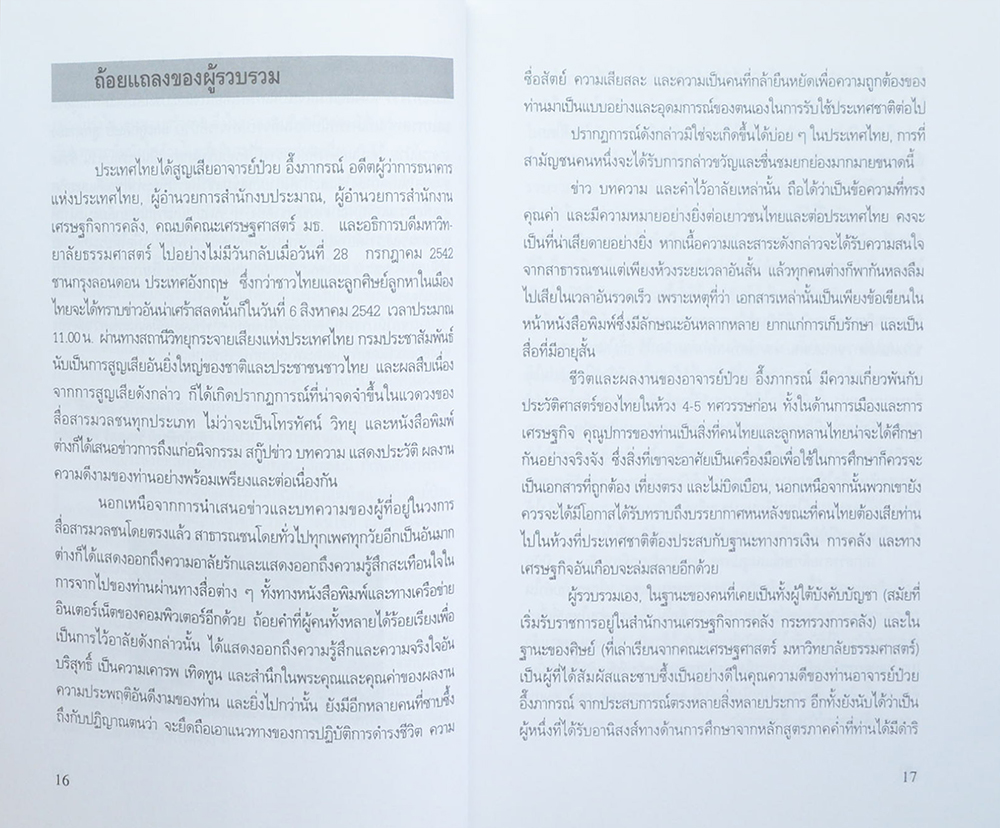 ถ้อยแถลงของผู้รวบรวม
ประเทศไทยได้สูญเสียอาจารย์ป๋วย อึ๊งภากรณ์ อดีตผู้ว่าการธนาคาร
แห่งประเทศไทย, ผู้อำนวยการสำนักงบประมาณ, ผู้อำนวยการสำนักงาน
เศรษฐกิจการคลัง, คณบดีคณะเศรษฐศาสตร์ มธ. และอธิการบดีมหาวิท-
ยาลัยธรรมศาสตร์ ไปอย่างไม่มีวันกลับเมื่อวันที่ 28 กรกฎาคม 2542
ชานกรุงลอนดอน ประเทศอังกฤษ ซึ่งกว่าชาวไทยและลูกศิษย์ลูกหาในเมือง
ไทยจะได้ทราบข่าวอันน่าเศร้าสลดนั้นก็ในวันที่ 6 สิงหาคม 2542 เวลาประมาณ
11.00 น. ผ่านทางสถานีวิทยุกระจายเสียงแห่งประเทศไทย กรมประชาสัมพันธ์
นับเป็นการสูญเสียอันยิ่งใหญ่ของชาติและประชาชนชาวไทย และผลสืบเนื่อง
จากการสูญเสียดังกล่าว ก็ได้เกิดปรากฏการณ์ที่น่าจดจำขึ้นในแวดวงของ
สื่อสารมวลชนทุกประเภท ไม่ว่าจะเป็นโทรทัศน์ วิทยุ และหนังสือพิมพ์
ต่างก็ได้เสนอข่าวการถึงแก่อนิจกรรม สกู๊ปข่าว บทความ แสดงประวัติ ผลงาน
ความดีงามของท่านอย่างพร้อมเพรียงและต่อเนื่องกัน
นอกเหนือจากการนำเสนอข่าวและบทความของผู้ที่อยู่ในวงการ
สื่อสารมวลชนโดยตรงแล้ว สาธารณชนโดยทั่วไปทุกเพศทุกวัยอีกเป็นอันมาก
ต่างก็ได้แสดงออกถึงความอาลัยรักและแสดงออกถึงความรู้สึกสะเทือนใจใน
การจากไปของท่านผ่านทางสื่อต่าง ๆ ทั้งทางหนังสือพิมพ์และทางเครือข่าย
อินเตอร์เน็ตของคอมพิวเตอร์อีกด้วย ถ้อยคำที่ผู้คนทั้งหลายได้ร้อยเรียงเพื่อ
เป็นการไว้อาลัยดังกล่าวนั้น ได้แสดงออกถึงความรู้สึกและความจริงใจอัน
บริสุทธิ์ เป็นความเคารพ เทิดทูน และสำนึกในพระคุณและคุณค่าของผลงาน
ความประพฤติอันดีงามของท่าน และยิ่งไปกว่านั้น ยังมีอีกหลายคนที่ซาบซึ้ง
ถึงกับปฏิญาณตนว่า จะยึดถือเอาแนวทางของการปฏิบัติการดำรงชีวิต ความ
16
ซื่อสัตย์ ความเสียสละ และความเป็นคนที่กล้ายืนหยัดเพื่อความถูกต้องของ
ท่านมาเป็นแบบอย่างและอุดมการณ์ของตนเองในการรับใช้ประเทศชาติต่อไป
ปรากฏการณ์ดังกล่าวมิใช่จะเกิดขึ้นได้บ่อย ๆ ในประเทศไทย, การที่
สามัญชนคนหนึ่งจะได้รับการกล่าวขวัญและชื่นชมยกย่องมากมายขนาดนี้
ข่าว บทความ และคำไว้อาลัยเหล่านั้น ถือได้ว่าเป็นข้อความที่ทรง
คุณค่า และมีความหมายอย่างยิ่งต่อเยาวชนไทยและต่อประเทศไทย คงจะ
เป็นที่น่าเสียดายอย่างยิ่ง หากเนื้อความและสาระดังกล่าวจะได้รับความสนใจ
จากสาธารณชนแต่เพียงห้วงระยะเวลาอันสั้น แล้วทุกคนต่างก็พากันหลงลืม
ไปเสียในเวลาอันรวดเร็ว เพราะเหตุที่ว่า เอกสารเหล่านั้นเป็นเพียงข้อเขียนใน
หน้าหนังสือพิมพ์ซึ่งมีลักษณะอันหลากหลาย ยากแก่การเก็บรักษา และเป็น
สื่อที่มีอายุสั้น
ชีวิตและผลงานของอาจารย์ป๋วย อึ๊งภากรณ์ มีความเกี่ยวพันกับ
ประวัติศาสตร์ของไทยในห้วง 4-5 ทศวรรษก่อน ทั้งในด้านการเมืองและการ
เศรษฐกิจ คุณูปการของท่านเป็นสิ่งที่คนไทยและลูกหลานไทยน่าจะได้ศึกษา
กันอย่างจริงจัง ซึ่งสิ่งที่เขาจะอาศัยเป็นเครื่องมือเพื่อใช้ในการศึกษาก็ควรจะ
เป็นเอกสารที่ถูกต้อง เที่ยงตรง และไม่บิดเบือน, นอกเหนือจากนั้นพวกเขายัง
ควรจะได้มีโอกาสได้รับทราบถึงบรรยากาศหนหลังขณะที่คนไทยต้องเสียท่าน
ไปในห้วงที่ประเทศชาติต้องประสบกับฐานะทางการเงิน การคลัง และทาง
เศรษฐกิจอันเกือบจะล่มสลายอีกด้วย
ผู้รวบรวมเอง, ในฐานะของคนที่เคยเป็นทั้งผู้ใต้บังคับบัญชา (สมัยที่
เริ่มรับราชการอยู่ในสำนักงานเศรษฐกิจการคลัง กระทรวงการคลัง) และใน
ฐานะของศิษย์ (ที่เล่าเรียนจากคณะเศรษฐศาสตร์ มหาวิทยาลัยธรรมศาสตร์)
เป็นผู้ที่ได้สัมผัสและซาบซึ้งเป็นอย่างดีในคุณความดีของท่านอาจารย์ป๋วย
อึ๊งภากรณ์ จากประสบการณ์ตรงหลายสิ่งหลายประการ อีกทั้งยังนับได้ว่าเป็น
ผู้หนึ่งที่ได้รับอานิสงส์ทางด้านการศึกษาจากหลักสูตรภาคค่ำที่ท่านได้มีดำริ
17